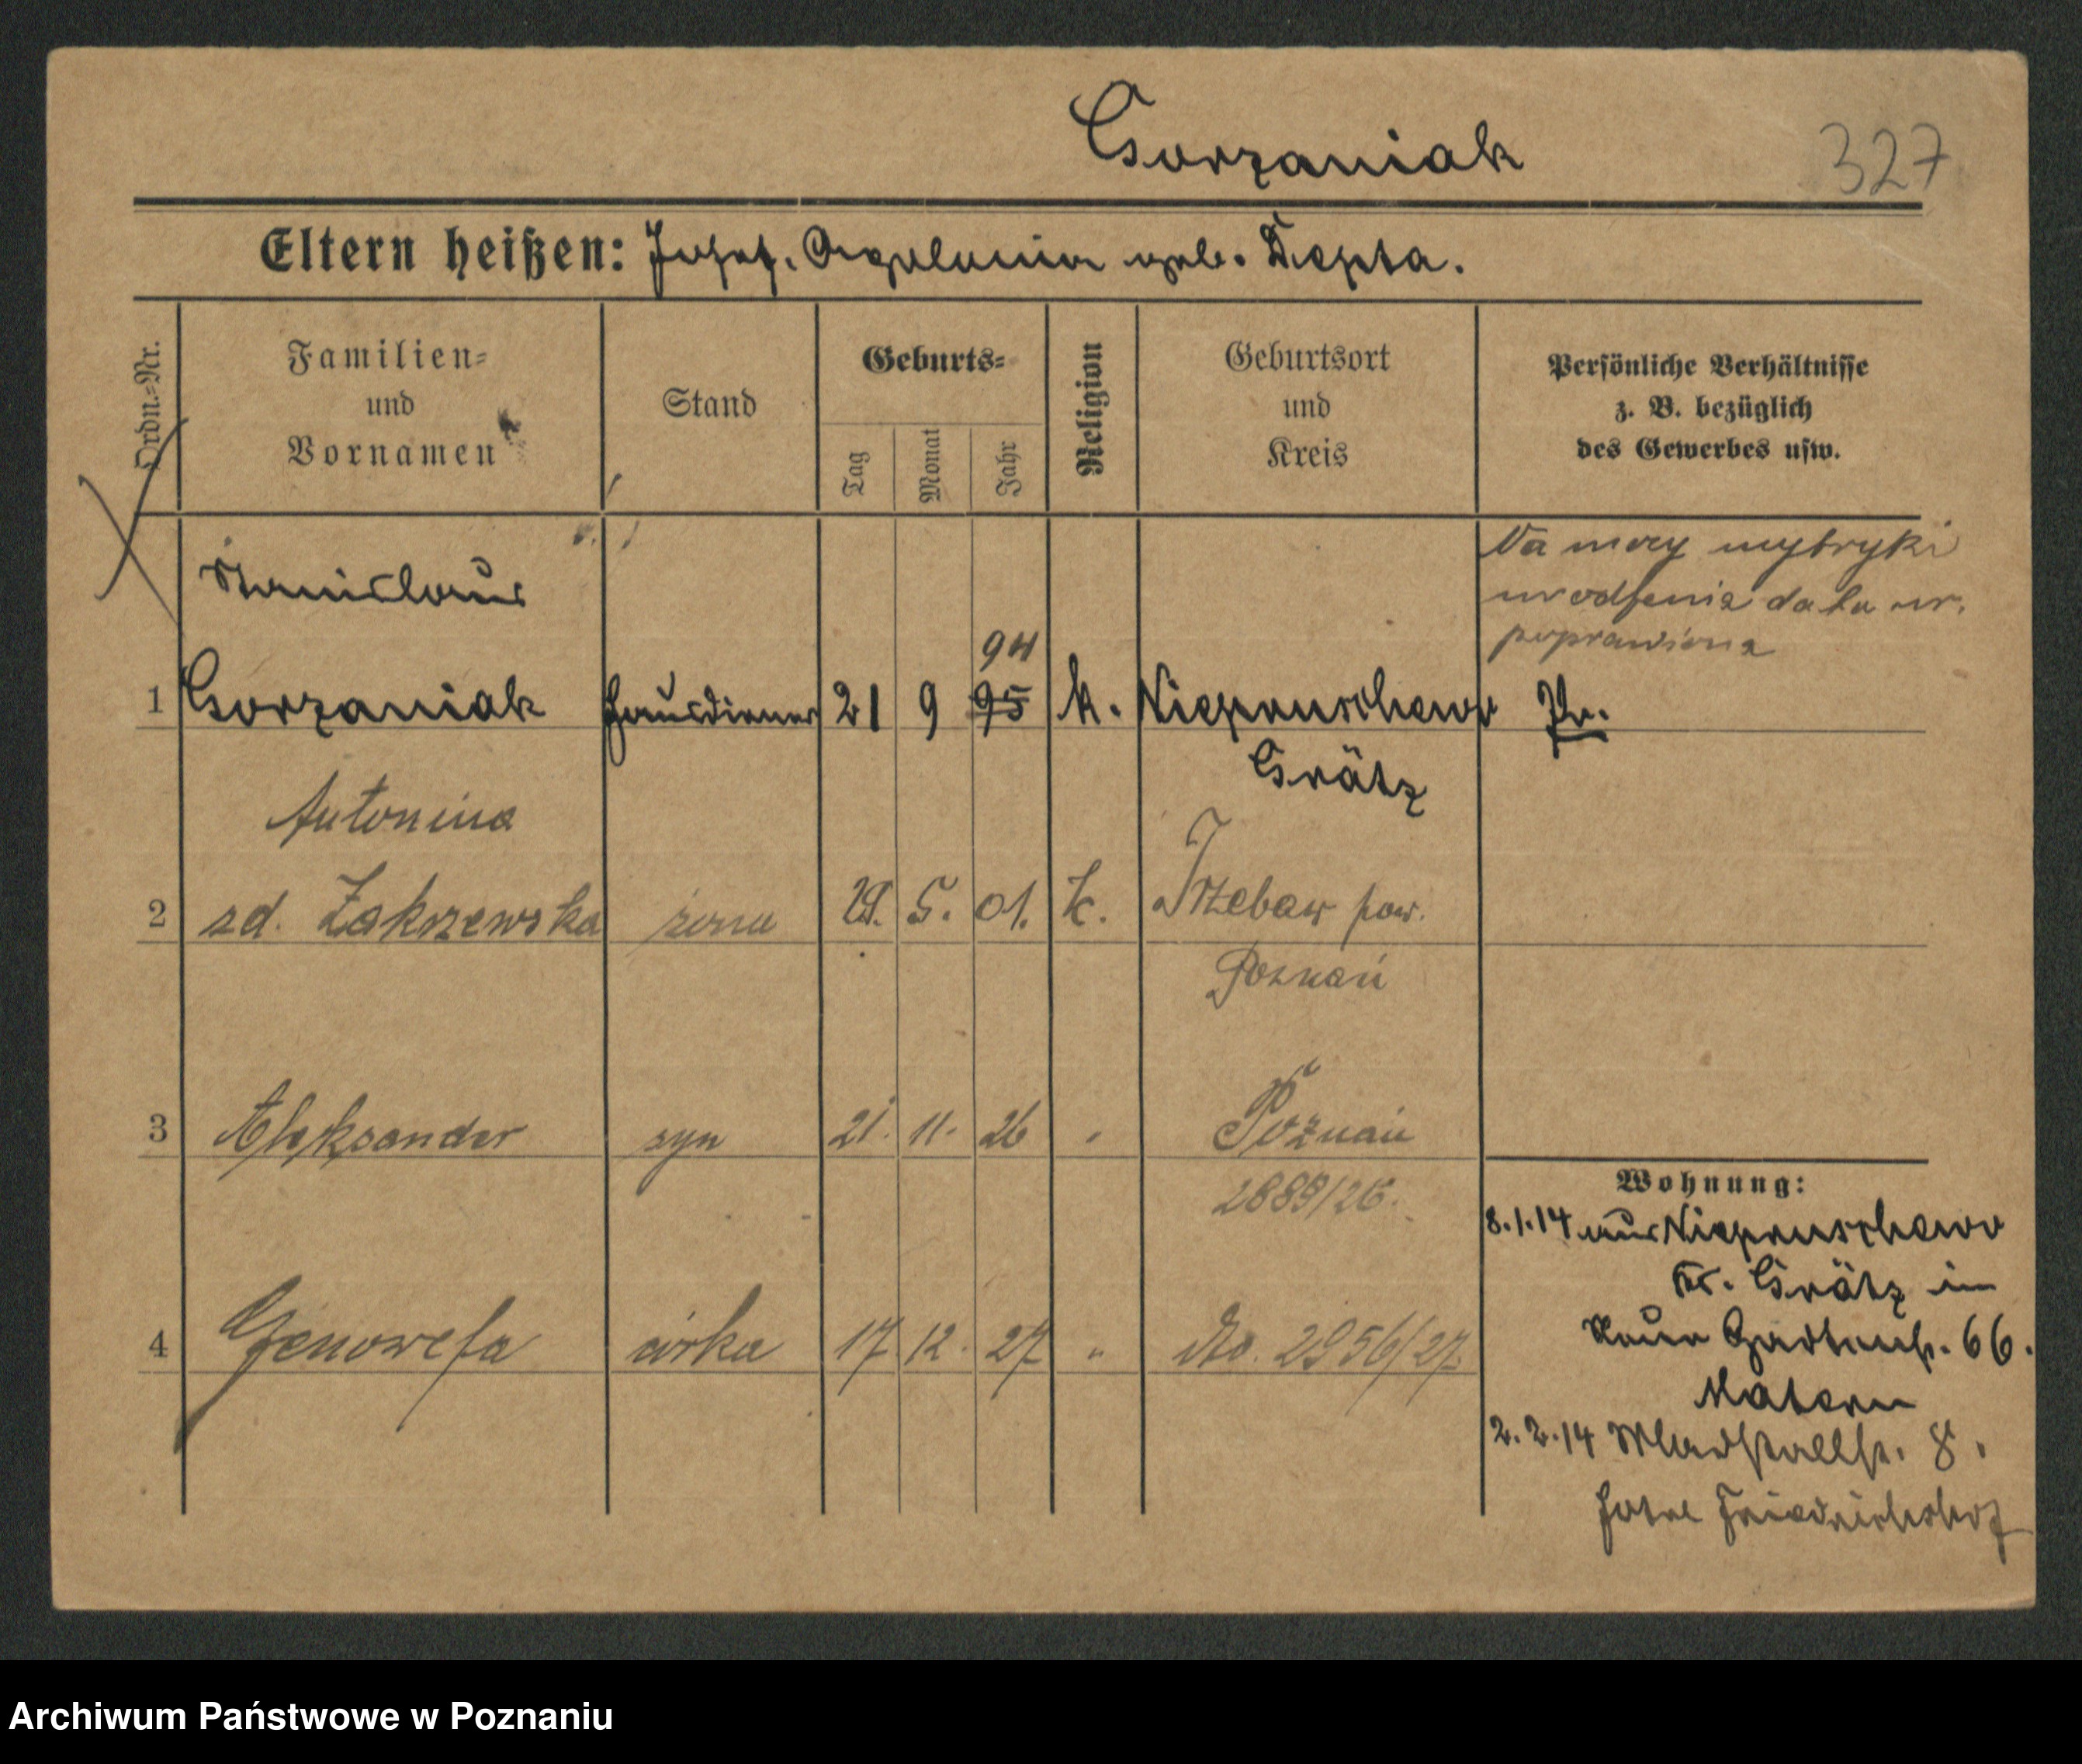 Gorzaniak
327
Eltern heißen: Josef, Appolonia geb. Depta.
Ordn.=Nr.
Familien=
und
Vornamen
Stand
Geburts=
Tag
Monat
Jahr
Religion
Geburtsort
und
Kreis
Persönliche Verhältnisse
z. B. bezüglich
des Gewerbes usw.
Na mocy metryki
urodzenia data ur.
poprawiona
Stanislaus
94
1 Gorzaniak Hausdiener 21 9 95 k. Niepruschewo
Grätz
Antonina
2 zd. Zakrzewska żona 29. 5. 01. k. Trzebaw pow.
Poznań
3 Aleksander syn 21. 11. 26 " Poznań
2889/26.
4 Genowefa córka 17 12. 27 " 2956/27.
Wohnung:
8.1.14 aus Niepruschewo
Kr. Grätz in
Neue Gartenstr. 66.
Matern
2.2.14 8.
Hotel Friedrichshof
Archiwum Państwowe w Poznaniu